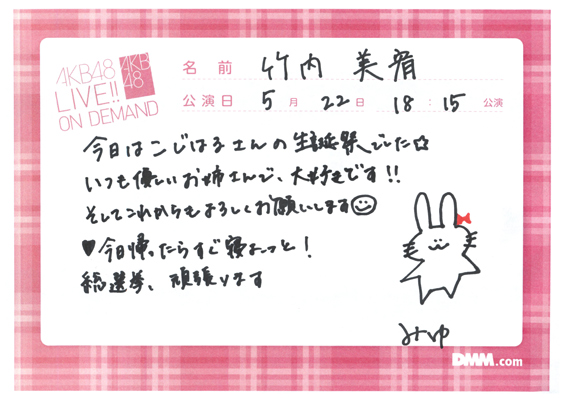 AKB48
LIVE!!
ON DEMAND
AKB
48
名前 竹内 美宥
公演日 5月 22日 18:15 公演
今日はこじはるさんの生誕祭でした☆
いつも優しいお姉さんで、大好きです!!
そしてこれからもよろしくお願いします☺
♥今日帰ったらすぐ寝よーっと!
総選挙、頑張ります
みゆ
DMM.com